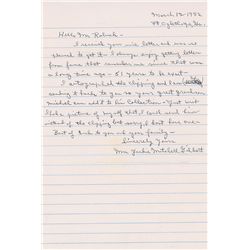 March 17-1982
Ft Oglethorpe, Ga.
Hello Mr
I received your nice letter and was so
pleased to get it. I always enjoy getting letters
from fans that remember me since that was
a long time ago - 51 years to be exact -
I autographed the clipping and I am
sending it back to you so your great grandson
Michael can add it to his collection - You want
a picture of myself that I could send him
instead of the clipping but sorry, I don't have one.
Best of luck to you and your family -
Sincerely Yours
Mrs Jackie Mitchell Gilbert